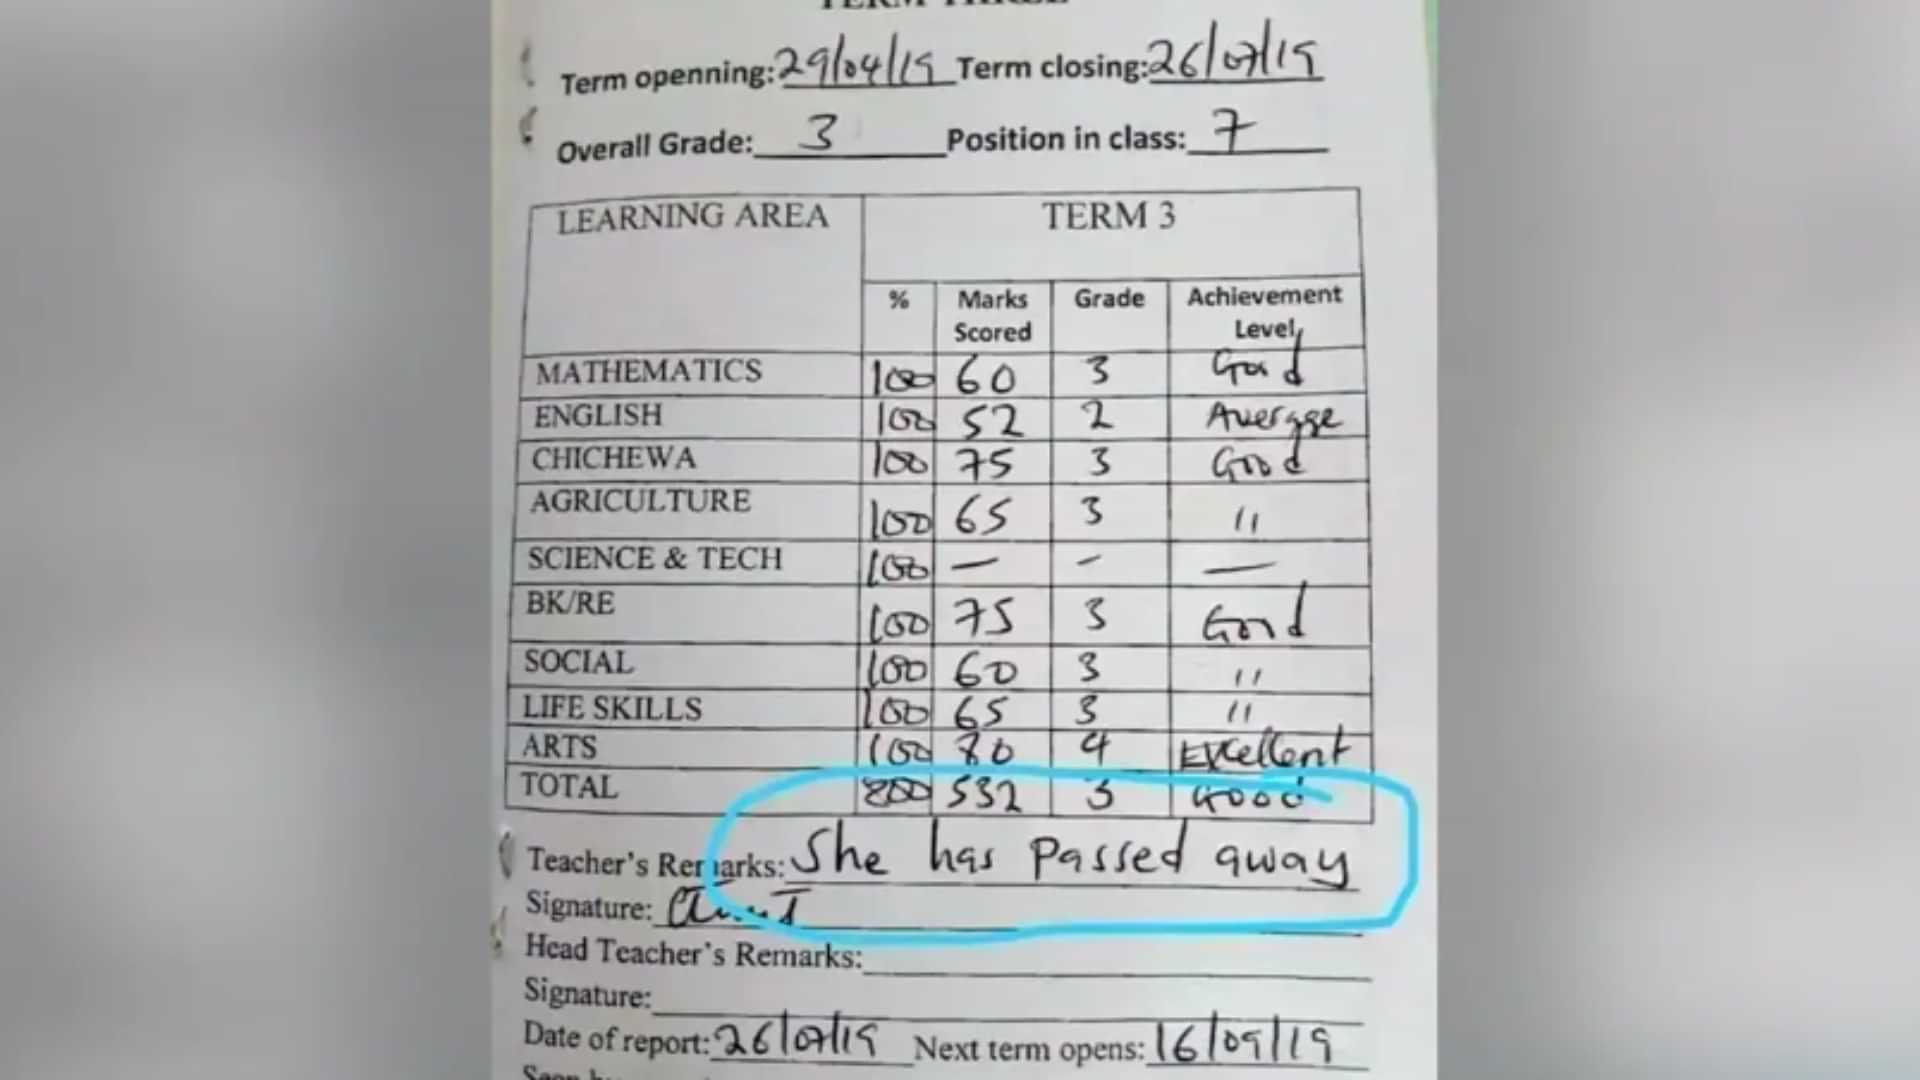 TERM THREE
Term openning: 29/04/19 Term closing: 26/07/19
Overall Grade: 3 Position in class: 7
LEARNING AREA TERM 3
% Marks Scored Grade Achievement Level
MATHEMATICS 100 60 3 Good
ENGLISH 100 52 2 Average
CHICHEWA 100 75 3 Good
AGRICULTURE 100 65 3 "
SCIENCE & TECH 100 — - —
BK/RE 100 75 3 Good
SOCIAL 100 60 3 "
LIFE SKILLS 100 65 3 "
ARTS 100 80 4 Excellent
TOTAL 800 532 3 Good
Teacher's Remarks: She has passed away
Signature:
Head Teacher's Remarks:
Signature:
Date of report: 26/07/19 Next term opens: 16/09/19